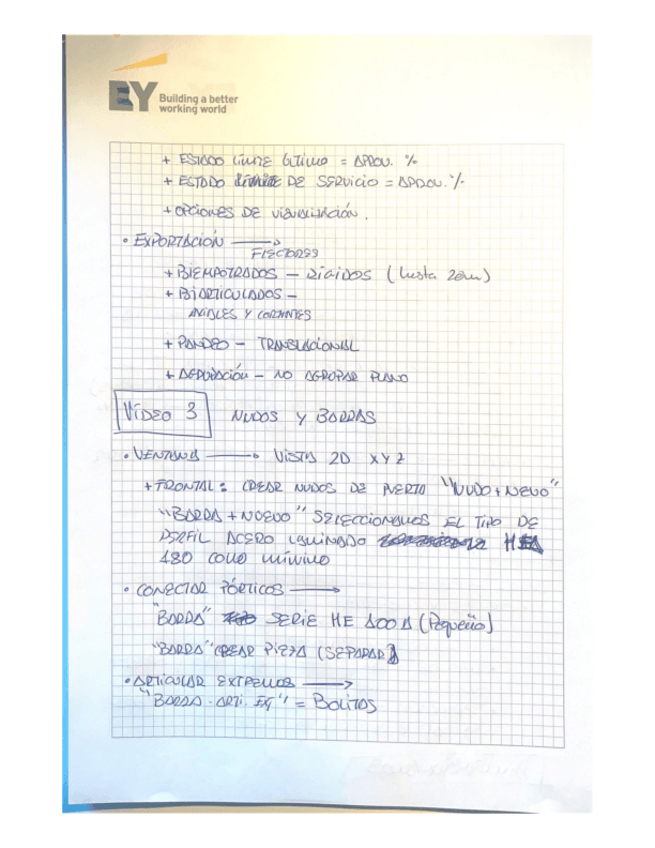 EY Building a better
working world
+ ESTADO LÍMITE ÚLTIMO = APROV. %
+ ESTADO LÍMITE DE SERVICIO = APROV. %
+ OPCIONES DE VISUALIZACIÓN.
• EXPORTACIÓN →
FLECTORES
+ BIEMPOTRADOS - RÍGIDOS (hasta 20cm)
+ BIARTICULADOS -
AXIALES Y CORTANTES
+ PANDEO - TRANSLACIONAL
+ AGRUPACIÓN - NO AGRUPAR PLANO
VÍDEO 3 NUDOS Y BARRAS
• VENTANA → VISTA 2D XYZ
+ FRONTAL: CREAR NUDOS DE "NUDO + NUEVO"
"BARRA + NUEVO" SELECCIONAMOS EL TIPO DE
PERFIL ACERO LAMINADO HEA
180 COMO MÍNIMO
• CONECTAR PÓRTICOS →
"BARRA" SERIE HE 100 A (Pequeño)
"BARRA" CREAR PIEZA (SEPARAR)
• ARTICULAR EXTREMOS →
"BARRA. ARTI. EX" = BOLITAS